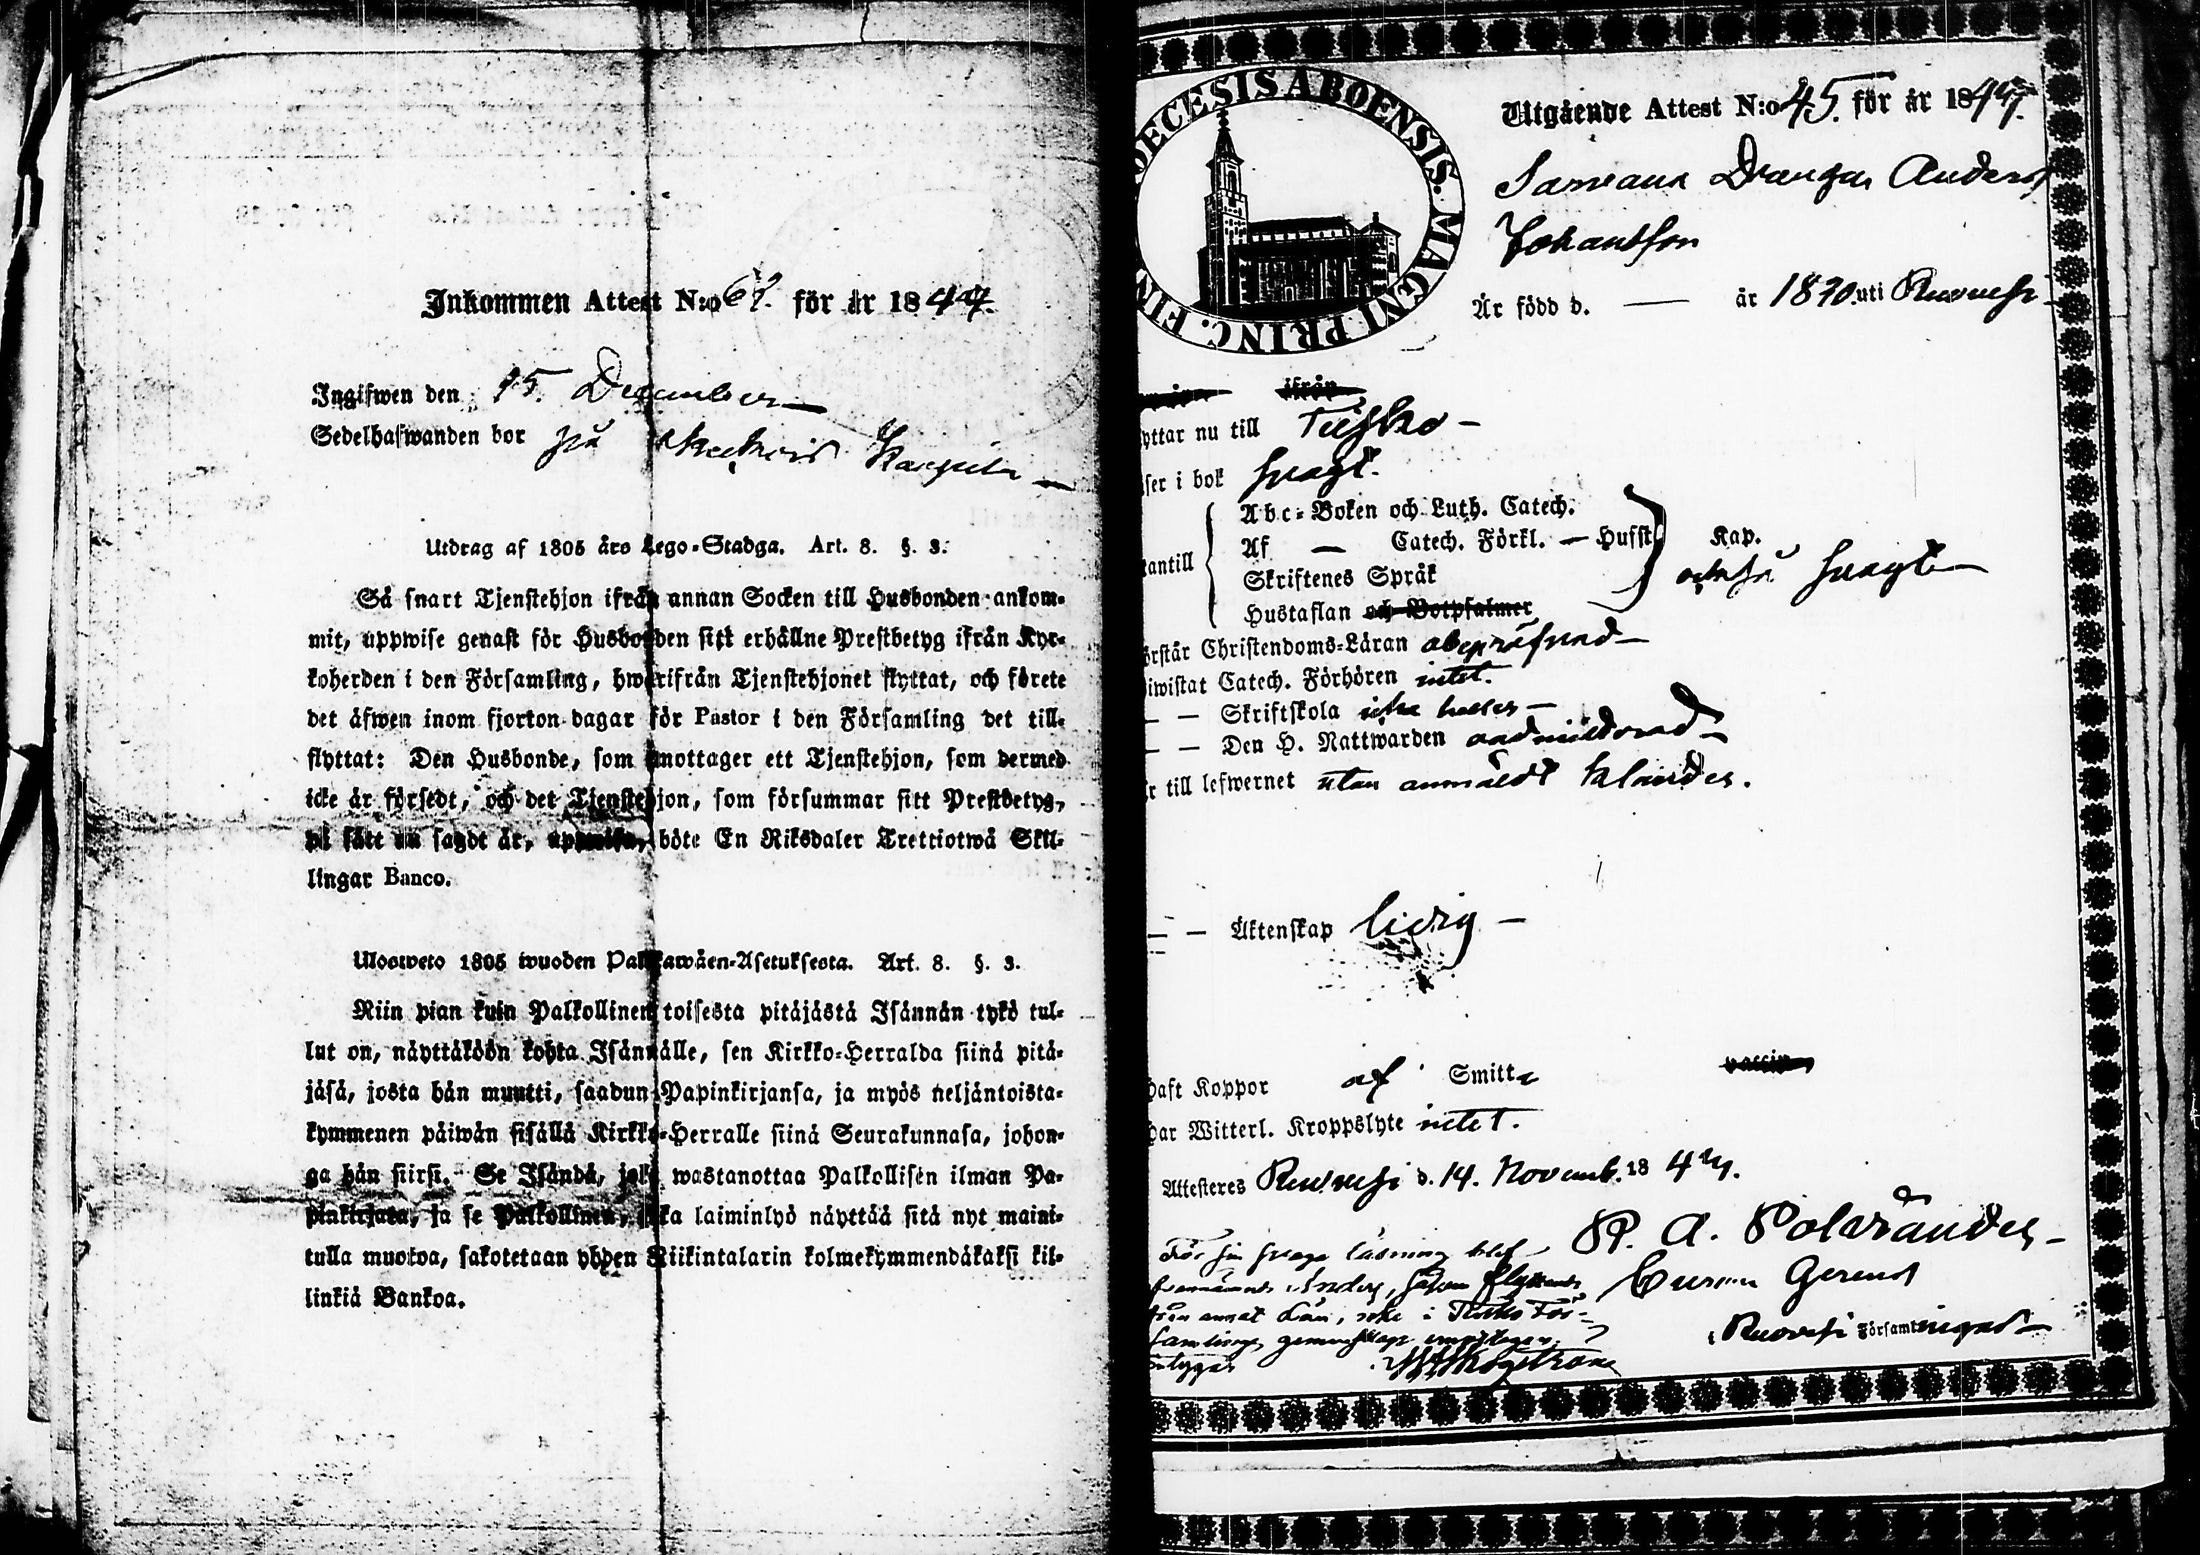 Inkommen Attest N:o 67. för år 1844.
Ingifwen den 15. December
Sedelhafwanden bor på
Utdrag af 1805 års Lego-Stadga. Art. 8. §. 3.
Så snart Tjenstehjon ifrån annan Socken till Husbonden ankom-
mit, uppwise genast för Husbonden sitt erhållne Prestbetyg ifrån Kyr-
koherden i den Församling, hwarifrån Tjenstehjonet flyttat, och förete
det äfwen inom fjorton dagar för Pastor i den Församling det till-
flyttat: Den Husbonde, som emottager ett Tjenstehjon, som dermed
icke är försedt, och det Tjenstehjon, som försummar sitt Prestbetyg,
på sätt nu sagdt är, uppwisa, böte En Riksdaler Trettiotwå Skil-
lingar Banco.
Ulosweto 1805 wuoden Palkkawäen-Asetuksesta. Art. 8. §. 3.
Niin pian kuin Palkollinen toisesta pitäjästä Isännän tykö tul-
lut on, näyttäköön kohta Isännälle, sen Kirkko-Herralda siinä pitä-
jäsä, josta hän muutti, saadun Papinkirjansa, ja myös neljäntoista-
kymmenen päiwän sisällä Kirkko-Herralle siinä Seurakunnasa, johon-
ga hän siirsi. Se Isändä, joka wastanottaa Palkollisen ilman Pa-
pinkirjata, ja se Palkollinen, joka laiminlyö näyttää sitä nyt maini-
tulla muotoa, sakotetaan yhden Riikintalarin kolmekymmendäkaksi kil-
linkiä Bankoa.
DECESIS ABOENSIS. MAGNI PRINC. FIN
Utgående Attest N:o 45. för år 1844.
Drängen Anders
Johansson
Är född d. — år 1820. uti Ruovesi
ifrån
yttar nu till Teisko
ser i bok swagt.
Abc-Boken och Luth. Catech.
Af — Catech. Förkl. — Husst. Kap.
tantill
Skriftenes Språk också swagt
Hustaflan och Botpsalmer
örstår Christendoms-Läran obepröfwad
iwistat Catech. Förhören intet.
— — Skriftskola icke heller
— — Den H. Nattwarden oadmitterad
r till lefwernet utan anmäldt klander.
— — Äktenskap ledig
haft Koppor af Smitta vaccin
har Witterl. Kroppslyte intet.
Attesteres Ruovesi d. 14. Novemb. 1844.
För sin swaga läsning blef
P. A. Polviander
från annat Län, icke i Teisko För-
i Ruovesi Församlingar
samlings gemenskap emottagen,
intygar